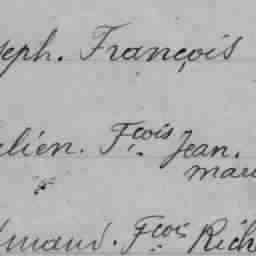 seph. François
lien. Fçois Jean.
mar
mand. Fçois Rich